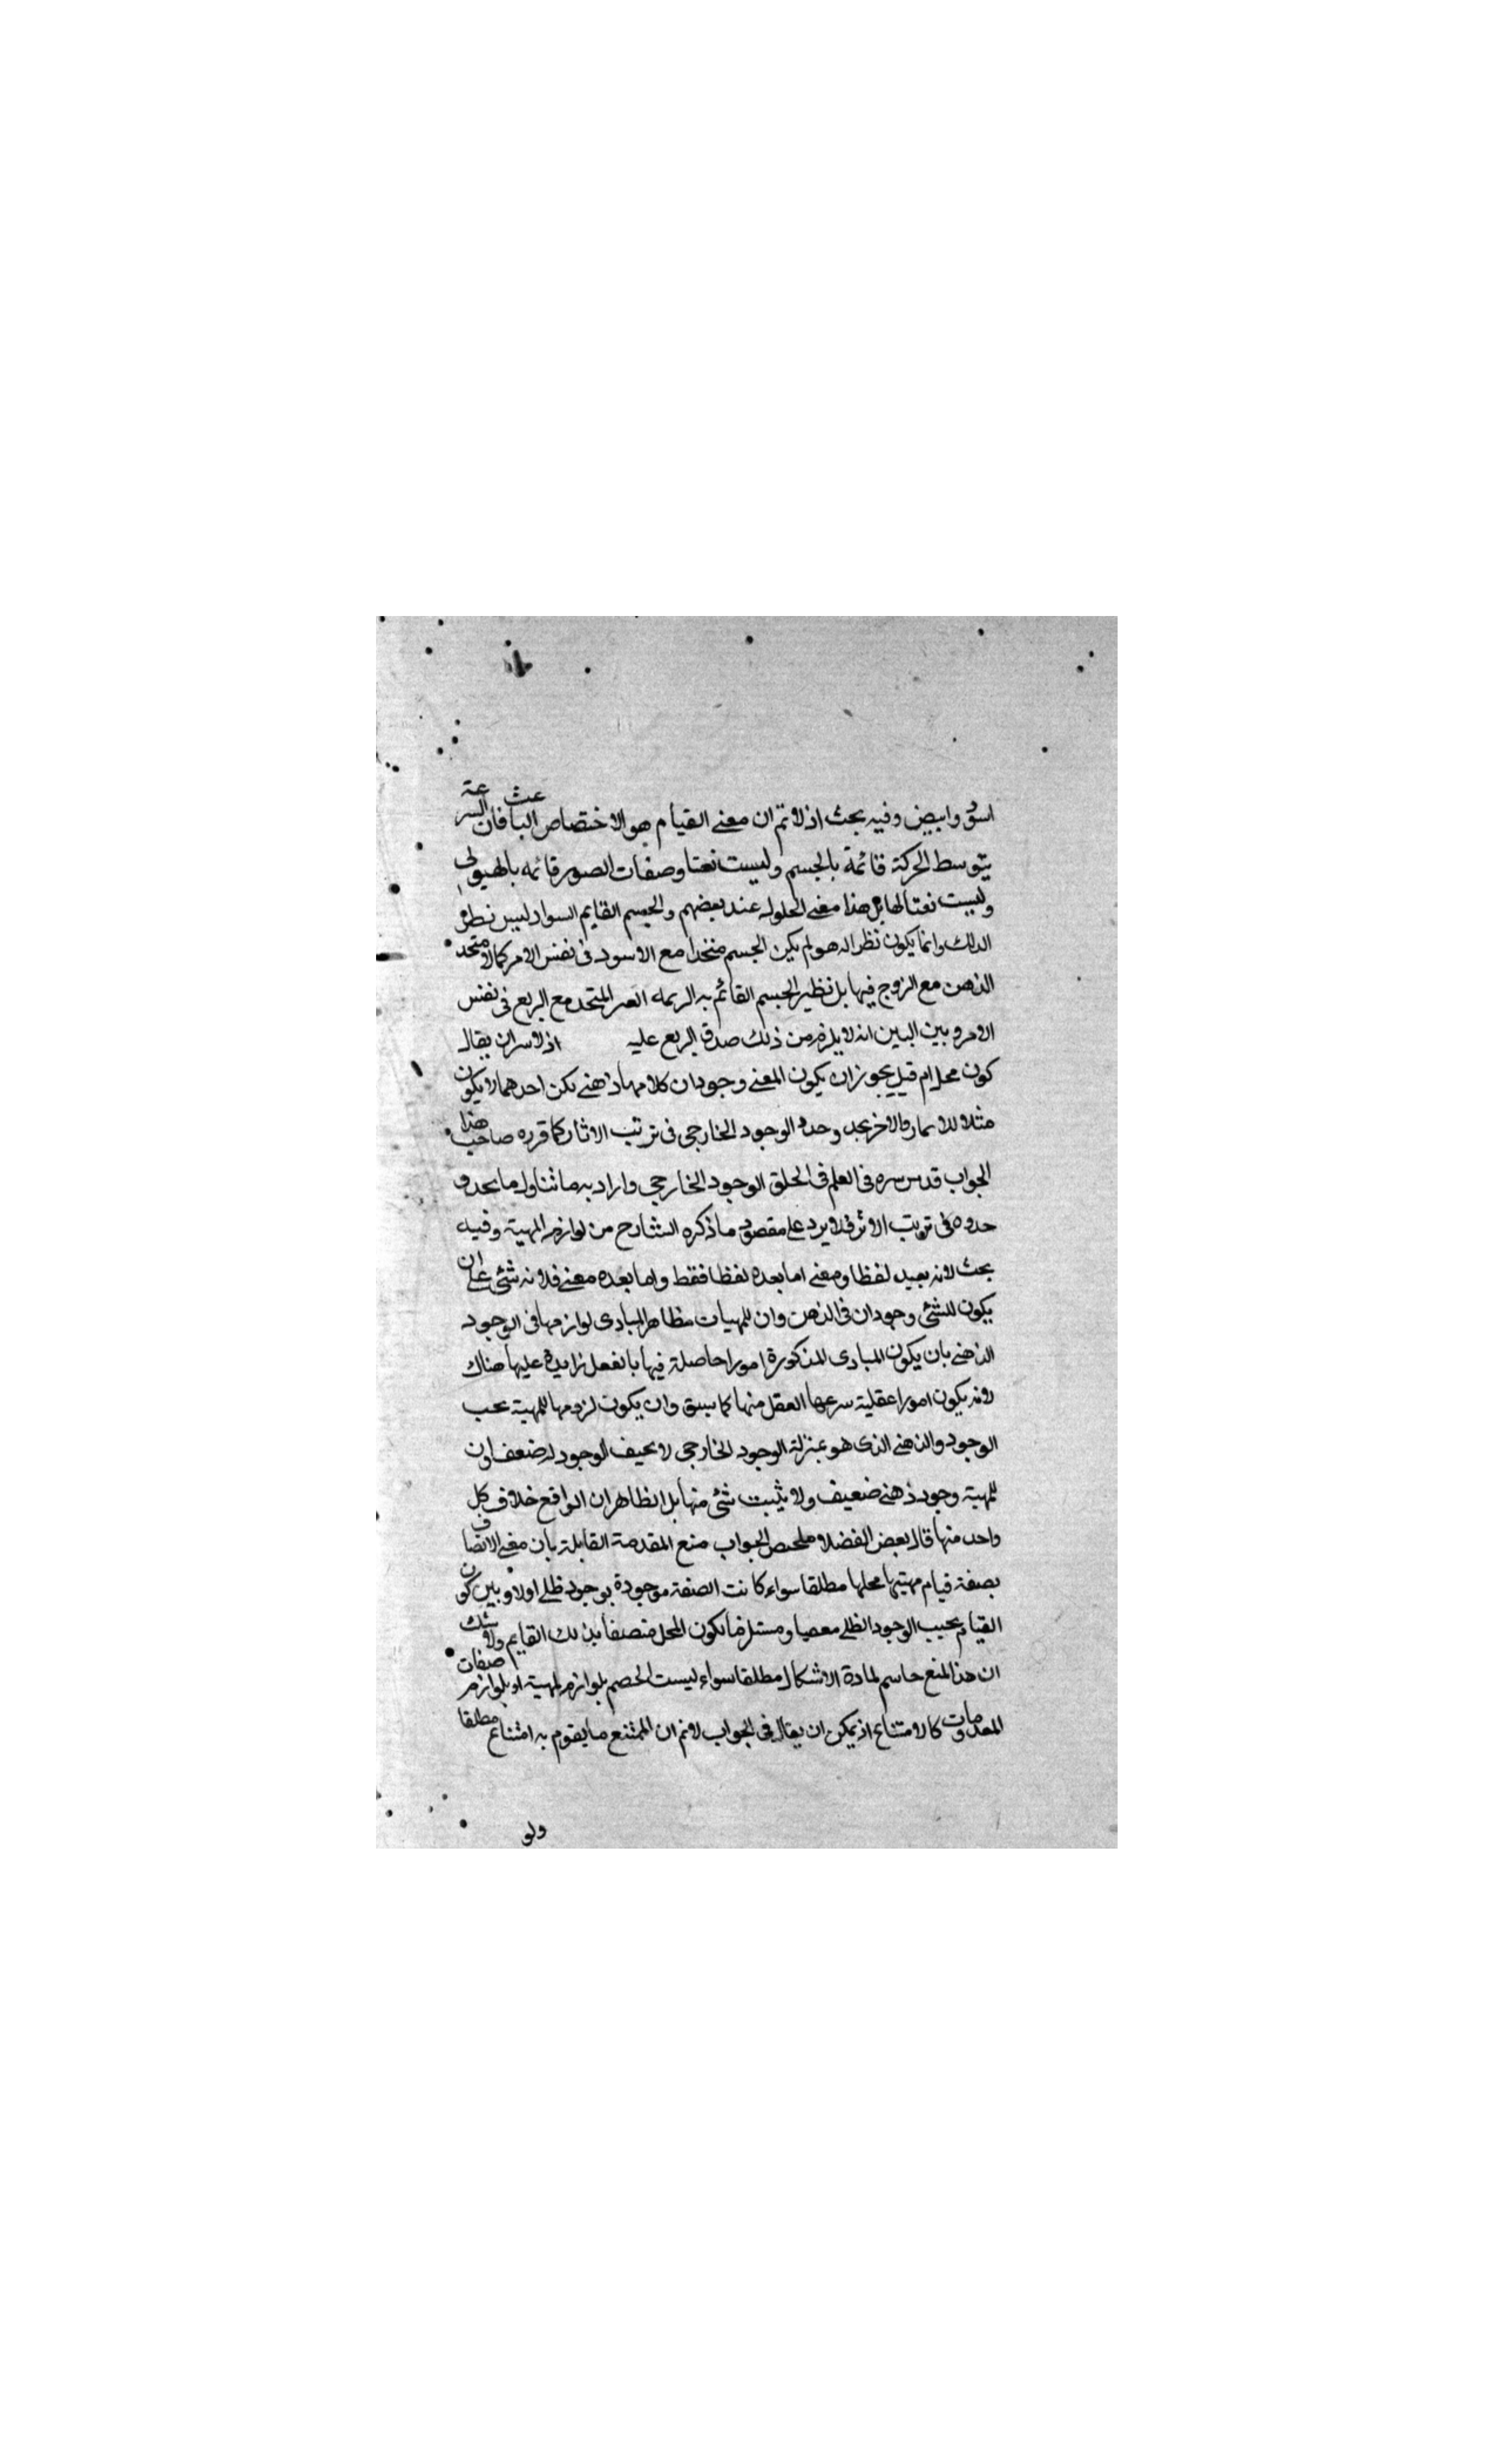 اسود وابيض وفيه بحث اذ لا تم ان معنى القيام هو الاختصاص الباعث فان السرعة
بتوسط الحركة قائمة بالجسم وليست نعتا وصفات الصور قائمه بالهيولى
وليست نعتا لها بل هذا معنى الحلول عند بعضهم والجسم القايم السواد ليس نطر
الذلك وانما يكون نظر اله هو لم يكن الجسم متحدا مع الاسود فى نفس الامر كما لا متحد
الذهن مع الزوج فيها بل نظير الجسم القائم به المتحد مع الربع فى نفس
الامر وبين البين انه لا يلزم من ذلك صدق الربع عليه اذ لا ان يقال
كون محل ام قيل يجوز ان يكون المعنى وجودان كلامها ذهنى لكن احدهما لا يكون
مثلا للاثار والاخر يحد وحدو الوجود الخارجى فى ترتب الاثار كما قرره صاحب هذا
الجواب قدس سره فى العلم فى الحلق الوجود الخارجى واراد به ما تناول ما يحدو
حدوه فى ترتب الاثر فلا يرد على مقصود ما ذكره الشارح من لوازم المهية وفيه
بحث لانه بعيد لفظا ومعنى اما بعده لفظا فقط واما بعده معنى فلانه شئ على ان
يكون للشئ وجودان فى الذهن وان للمهيات مظاهر المبادى لوازمها فى الوجود
الذهنى بان يكون المبادى المذكورة امورا حاصلة فيها بالفعل زايدة عليها هناك
لانه يكون امورا عقلية العقل منها كما سبق وان يكون لزومها للمهية بحب
الوجود والذهنى الذى هو بمنزلة الوجود الخارجى لا بحيف الوجود له ضعف ان
للمهية وجود ذهنى ضعيف ولا يثبت شئ منها بل الظاهر ان الواقع خلاف كل
واحد منها قال بعض الفضلا ملخص الجواب منع المقدمة القابلة بان معنى الاتصاف
بصفة قيام مهيتها محلها مطلقا سواء كانت الصفة موجودة بوجود ظلى اولا وبين كون
القيام بحيب الوجود الظلى ومستلزما لكون المحل متصفا بذلك القايم ولا شك
ان هذا المنع حاسم لمادة الاشكال مطلقا سواء ليست الخصم بلوازم المهية او بلوازم صفات
المعدومات كالامتناع اذ يمكن ان يقال فى الجواب لا نم ان الممتنع ما يقوم به امتناع مطلقا
ولو